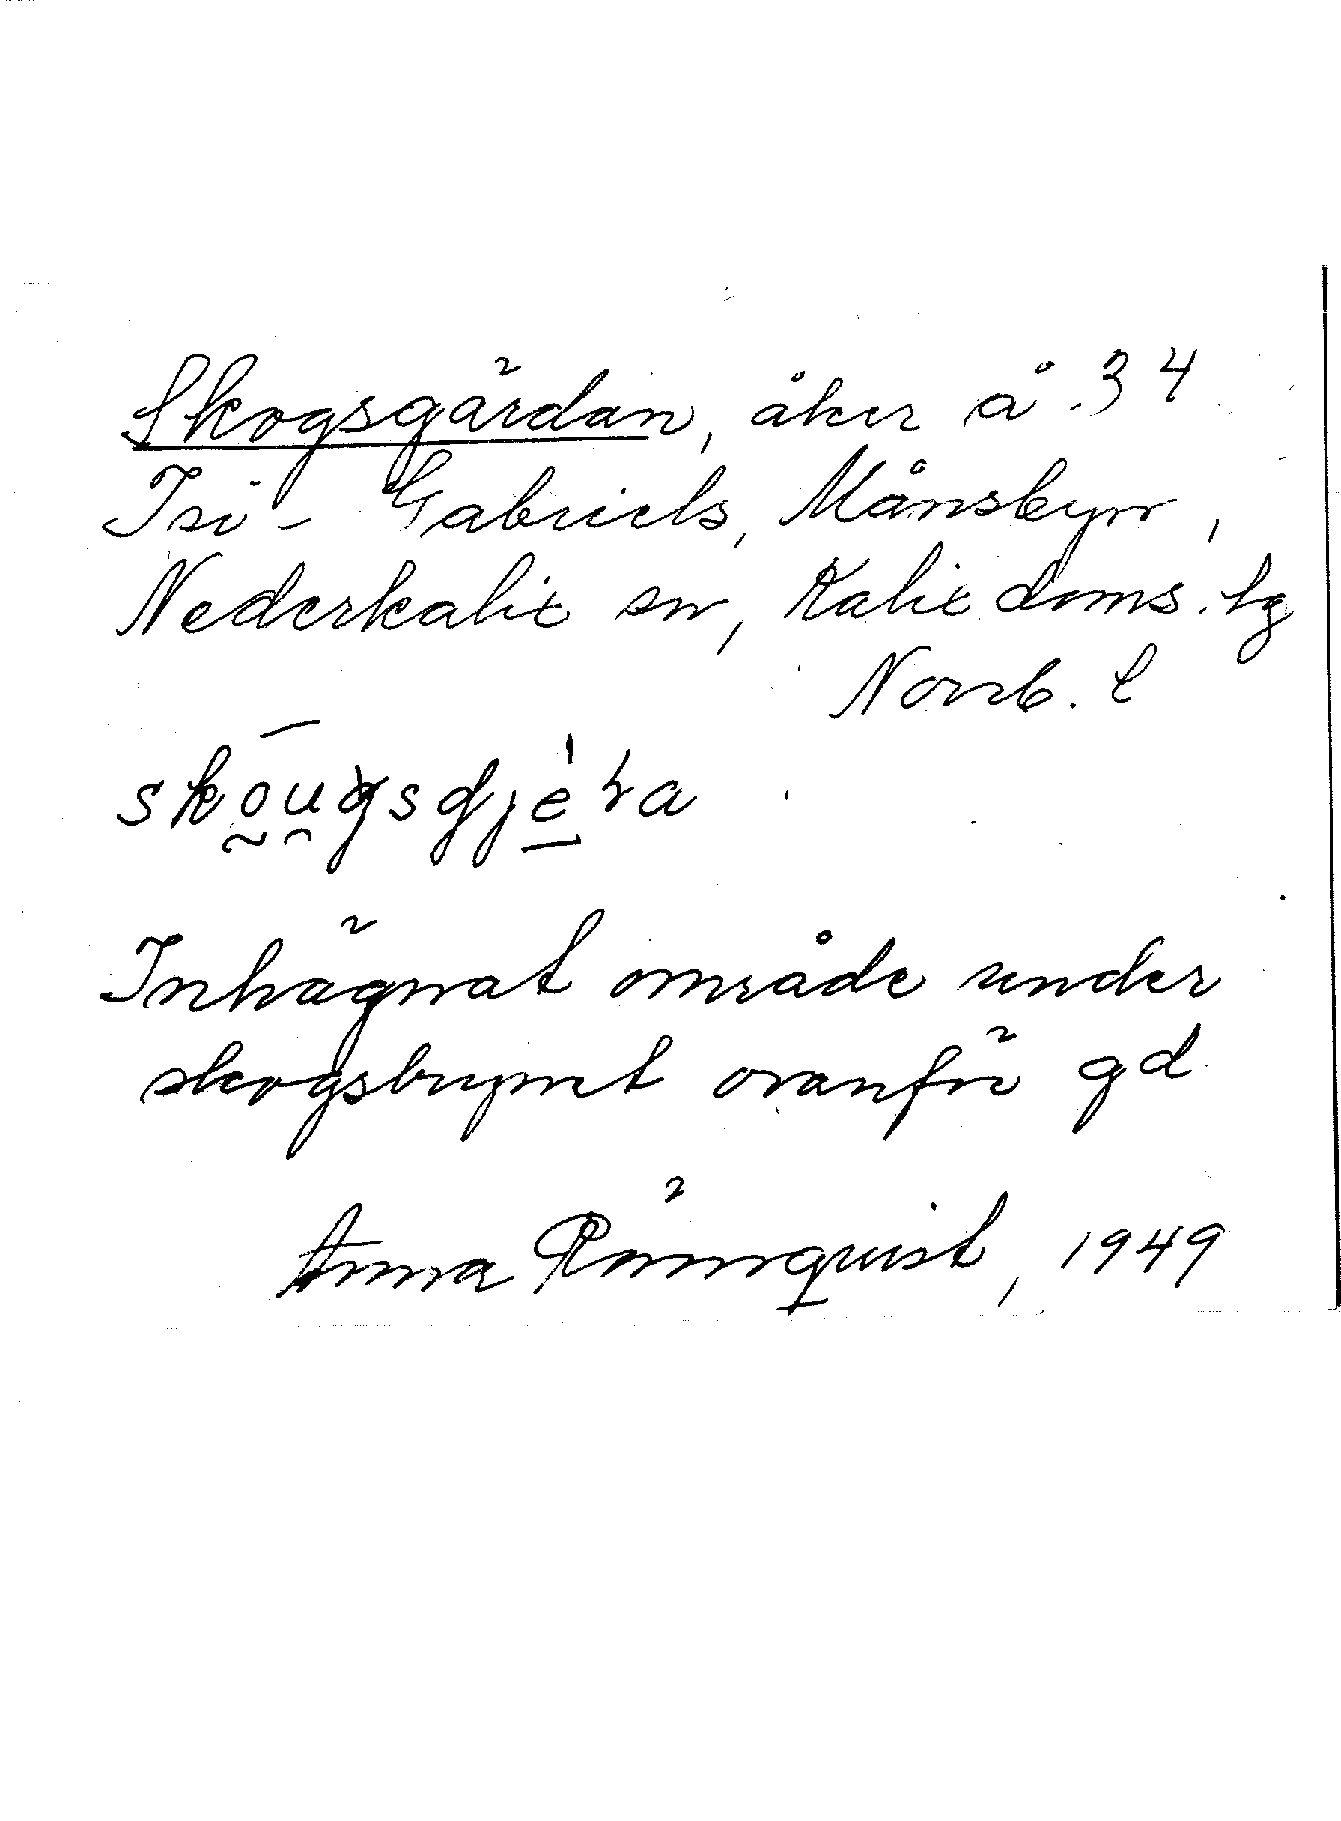 Skogsgärdan, åker å 3 4
Isi - Gabriels, Månsbyn,
Nederkalix sn, Kalix doms. lg
Norrb. l
skōu̯gsgjèra
Inhägnat område under
skogsbrynet ovanför gd
Anna Rönnquist, 1949